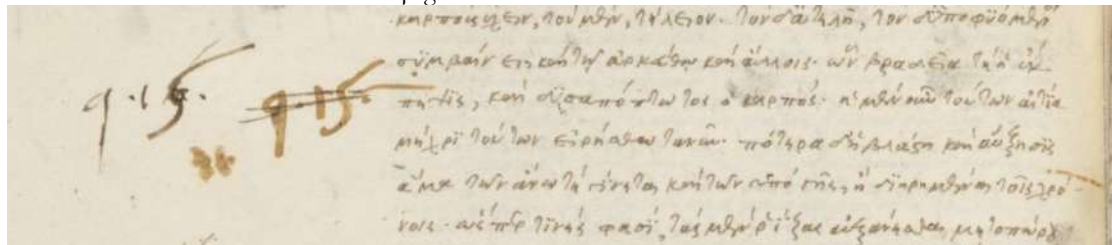 καρποὺς ἔχειν, τὸν μὲν, τέλειον· τὸν δ᾽ ἀτελῆ, τὸν δ᾽ ὑποφυόμενον
συμβαίνει καὶ τῇ ἀρκεύθῳ καὶ ἄλλοις· ὧν βραδεῖα τε ἡ
q.15. q.15. πέψις, καὶ δυσαπόπτωτος ὁ καρπός· αἱ μὲν οὖν τούτων αἰτίαι
μέχρι τούτων εἰρήσθωσαν· πότερα δ᾽ ἡ βλάστησις καὶ αὔξησις
ἅμα τῶν ἄνω τε γίνεται καὶ τῶν ὑπὸ γῆς, ἢ διῃρημένη τοῖς χρό-
νοις· ὥσπερ τινές φασι, τὰς μὲν ῥίζας αὐξάνεσθαι μετοπώρου